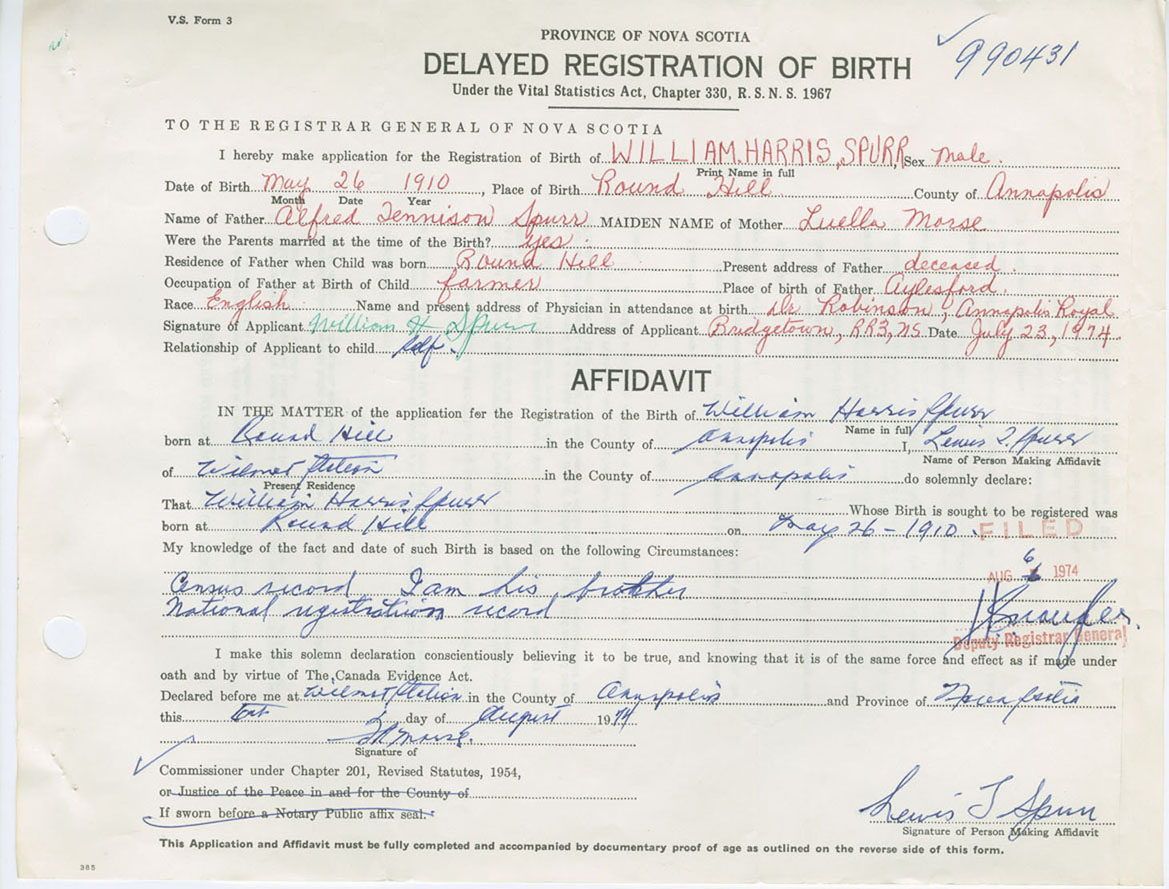 V.S. Form 3
990431
PROVINCE OF NOVA SCOTIA
DELAYED REGISTRATION OF BIRTH
Under the Vital Statistics Act, Chapter 330, R.S.N.S. 1967
TO THE REGISTRAR GENERAL OF NOVA SCOTIA
I hereby make application for the Registration of Birth of WILLIAM HARRIS SPURR Sex Male.
Print Name in full
Date of Birth May 26 1910, Place of Birth Round Hill County of Annapolis
Month Date Year
Name of Father Alfred Tennison Spurr MAIDEN NAME of Mother Luella Morse
Were the Parents married at the time of the Birth? yes.
Residence of Father when Child was born Round Hill Present address of Father deceased.
Occupation of Father at Birth of Child farmer Place of birth of Father Aylesford.
Race English Name and present address of Physician in attendance at birth Dr. Robinson, Annapolis Royal.
Signature of Applicant William H Spurr Address of Applicant Bridgetown, RR3, NS. Date July 23, 1974.
Relationship of Applicant to child Self.
AFFIDAVIT
IN THE MATTER of the application fer the Registration of the Birth of William Harris Spurr
Name in full
born at Round Hill in the County of Annapolis I, Lewis T. Spurr
Name of Person Making Affidavit
of Wilmot Station in the County of Annapolis do solemnly declare:
Present Residence
That William Harris Spurr Whose Birth is sought to be registered was
born at Round Hill on May 26 - 1910.
FILED
My knowledge of the fact and date of such Birth is based on the following Circumstances:
AUG 6 1974
Census record I am his brother
National registration record
Deputy Registrar General
I make this solemn declaration conscientiously believing it to be true, and knowing that it is of the same force and effect as if made under
oath and by virtue of The Canada Evidence Act.
Declared before me at Wilmot Station in the County of Annapolis and Province of Nova Scotia
this 1st day of August 1974
Morse.
Signature of
Commissioner under Chapter 201, Revised Statutes, 1954,
or Justice of the Peace in and for the County of
If sworn before a Notary Public affix seal.
Lewis T Spurr
Signature of Person Making Affidavit
This Application and Affidavit must be fully completed and accompanied by documentary proof of age as outlined on the reverse side of this form.
385